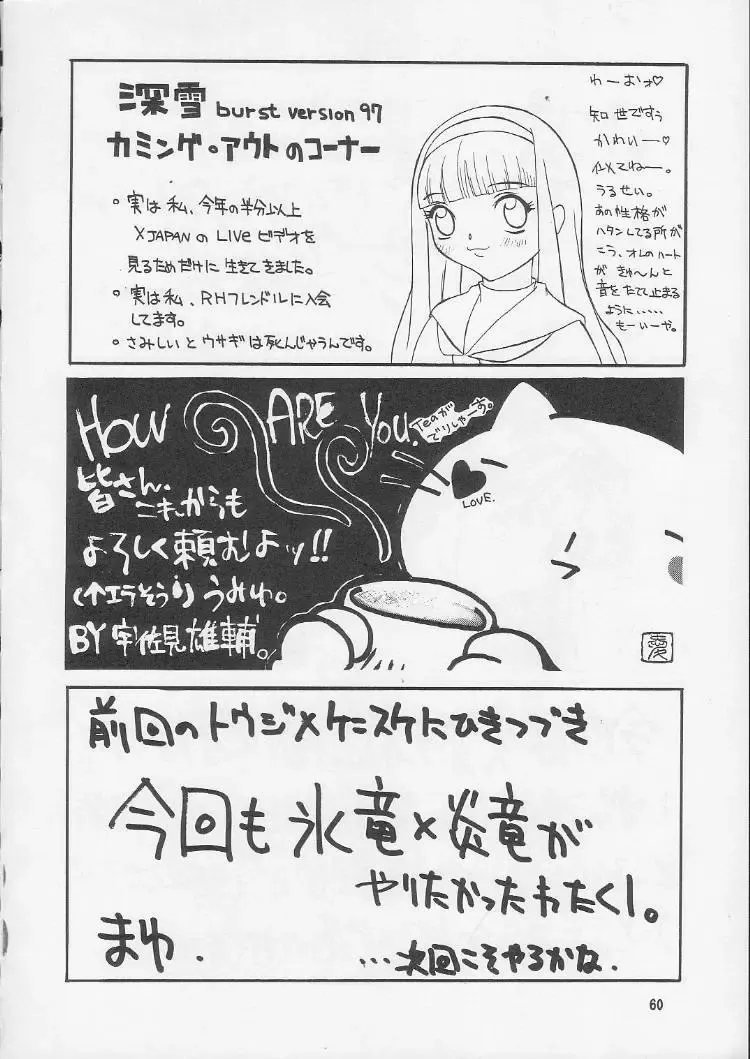 深雪 burst version 97
カミング・アウトのコーナー
。実は私、今年の半分以上
X JAPANのLIVEビデオを
見るためだけに生きてきました。
。実は私、RHフレンドルに入会
してます。
。さみしいとウサギは死んじゃうんです。
わーおォ♡
知世ですぅ
かわいー♡
似てねー。
うるせい。
あの性格が
ハタンしてる所が
こう、オレのハート
が きゅ〜んと
音をたてて止まる
ように……
もーいーや。
HOW ARE YOU.
Teaが
でりしゃーす。
LOVE.
皆さん、
これからも
よろしく頼むよッ!!
(↑エラそう) うみゅ。
BY 宇佐見雄輔。
愛
前回のトウジ×ケンスケにひきつづき
今回も氷竜×炎竜が
やりたかったわたくし。
まゆ.
...次回こそやるかな.
60